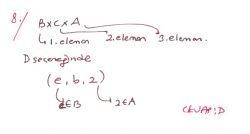 8./ B×C×A
↳ 1. eleman 2. eleman 3. eleman
D seçeneğinde
(e, b, 2)
e∈B 2∈A
CEVAP: D